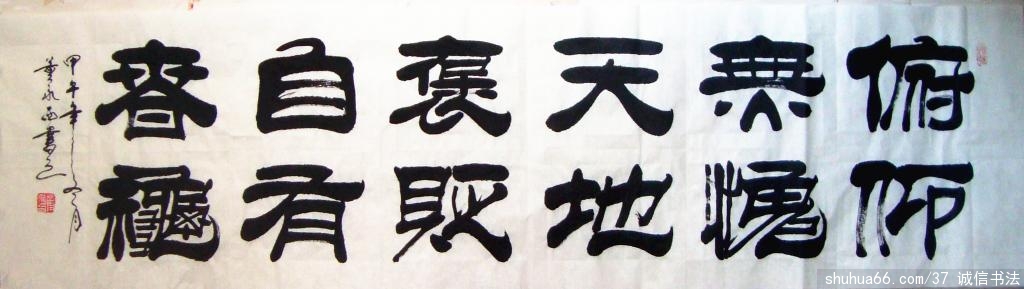 俯仰
無愧
天地
褒貶
自有
春龝
甲午年
書
shuhua66.com/37 诚信书法